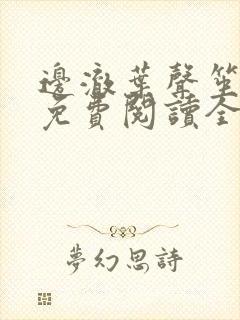 邊澈葉聲笙
免費閱讀全
夢幻思詩